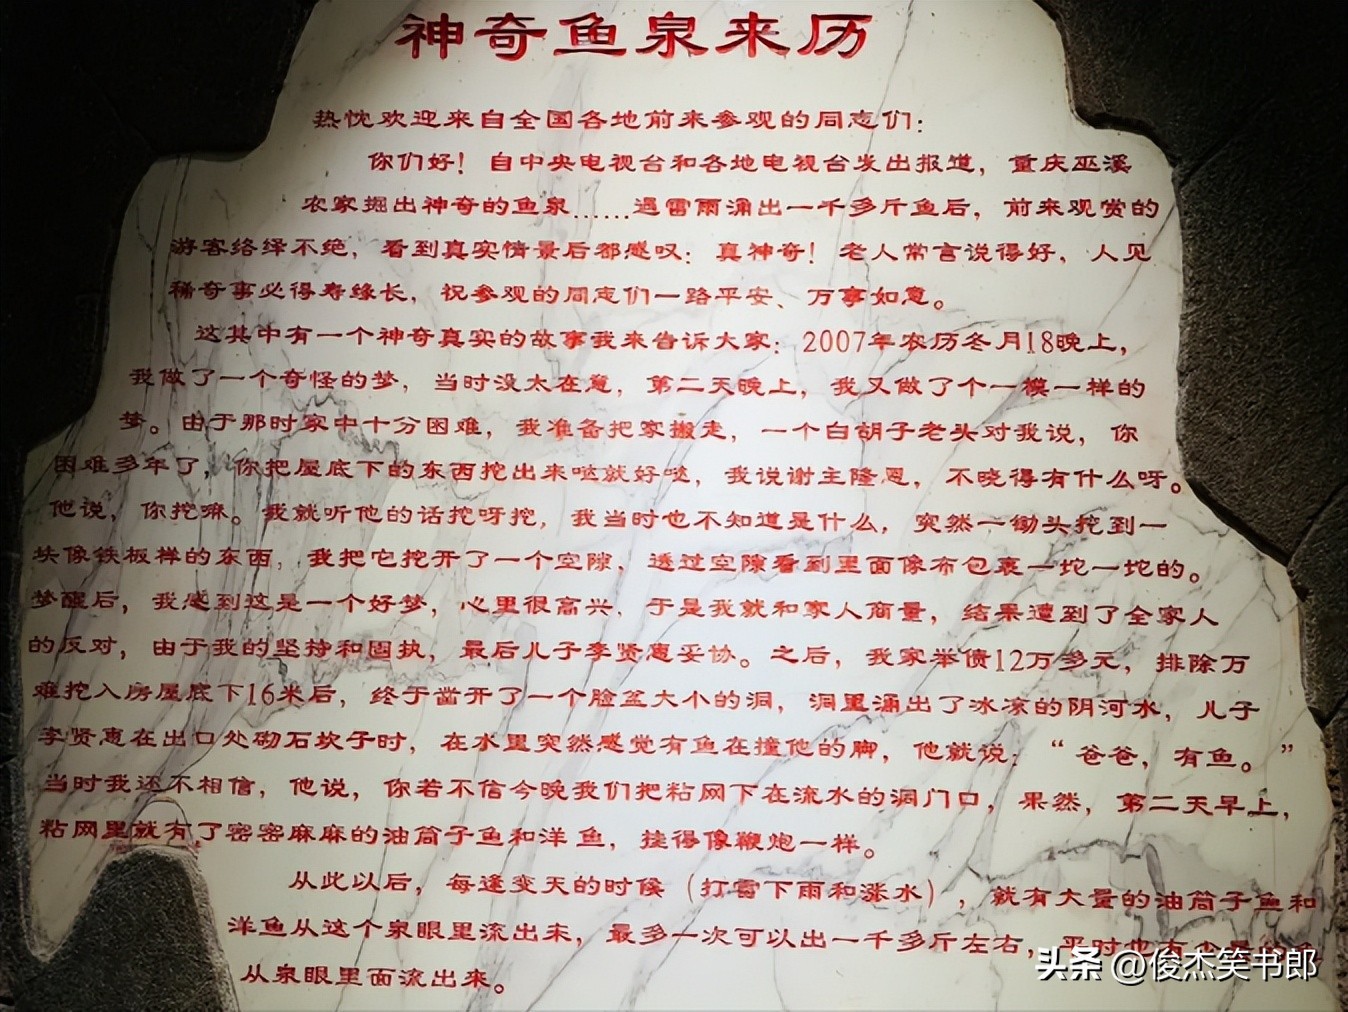 神奇鱼泉来历
热忱欢迎来自全国各地前来参观的同志们：
你们好！自中央电视台和各地电视台发出报道，重庆巫溪
农家掘出神奇的鱼泉……遇雷雨涌出一千多斤鱼后，前来观赏的
游客络绎不绝，看到真实情景后都感叹：真神奇！老人常言说得好，人见
稀奇事必得寿缘长，祝参观的同志们一路平安、万事如意。
这其中有一个神奇真实的故事我来告诉大家：2007年农历冬月18晚上，
我做了一个奇怪的梦，当时没太在意，第二天晚上，我又做了个一模一样的
梦。由于那时家中十分困难，我准备把家搬走，一个白胡子老头对我说，你
困难多年了，你把屋底下的东西挖出来哒就好哒，我说谢主隆恩，不晓得有什么呀。
他说，你挖嘛。我就听他的话挖呀挖，我当时也不知道是什么，突然一锄头挖到一
块像铁板样的东西，我把它挖开了一个空隙，透过空隙看到里面像布包裹一坨一坨的。
梦醒后，我感到这是一个好梦，心里很高兴，于是我就和家人商量，结果遭到了全家人
的反对，由于我的坚持和固执，最后儿子李贤惠妥协。之后，我家举债12万多元，排除万
难挖入房屋底下16米后，终于凿开了一个脸盆大小的洞，洞里涌出了冰凉的阴河水，儿子
李贤惠在出口处砌石坎子时，在水里突然感觉有鱼在撞他的脚，他就说：“爸爸，有鱼。”
当时我还不相信，他说，你若不信今晚我们把粘网下在流水的洞门口，果然，第二天早上，
粘网里就有了密密麻麻的油筒子鱼和洋鱼，挂得像鞭炮一样。
从此以后，每逢变天的时候（打雷下雨和涨水），就有大量的油筒子鱼和
洋鱼从这个泉眼里流出来，最多一次可以出一千多斤左右，平时也有
从泉眼里面流出来。
头条 @俊杰笑书郎